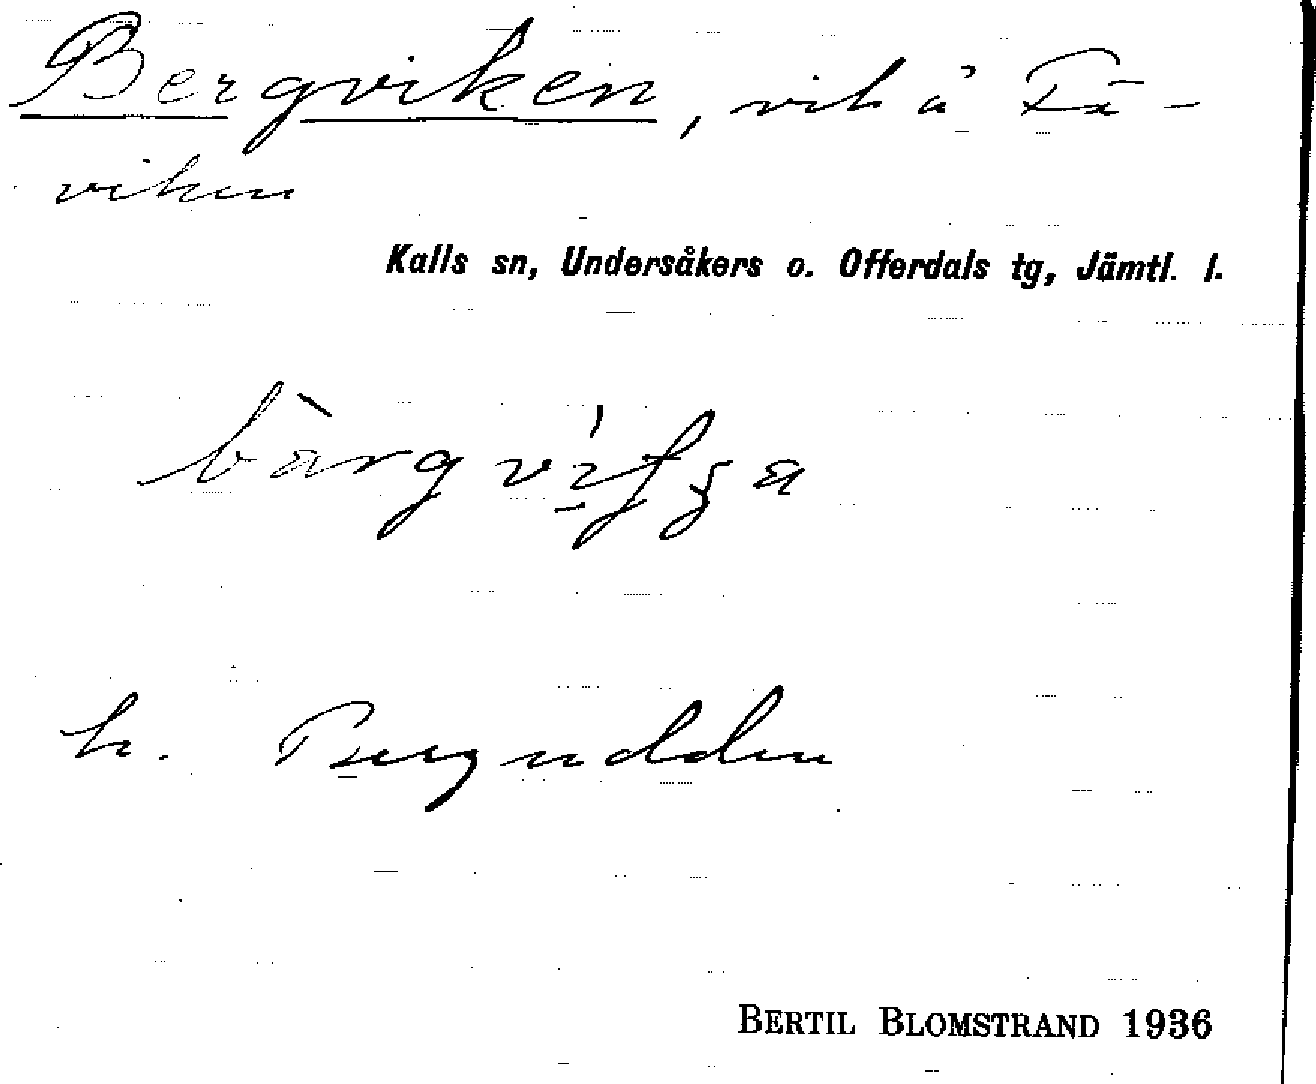 Bergviken, vik å Fä-
viken
Kalls sn, Undersåkers o. Offerdals tg, Jämtl. l.
h. Bergudden
BERTIL BLOMSTRAND 1936